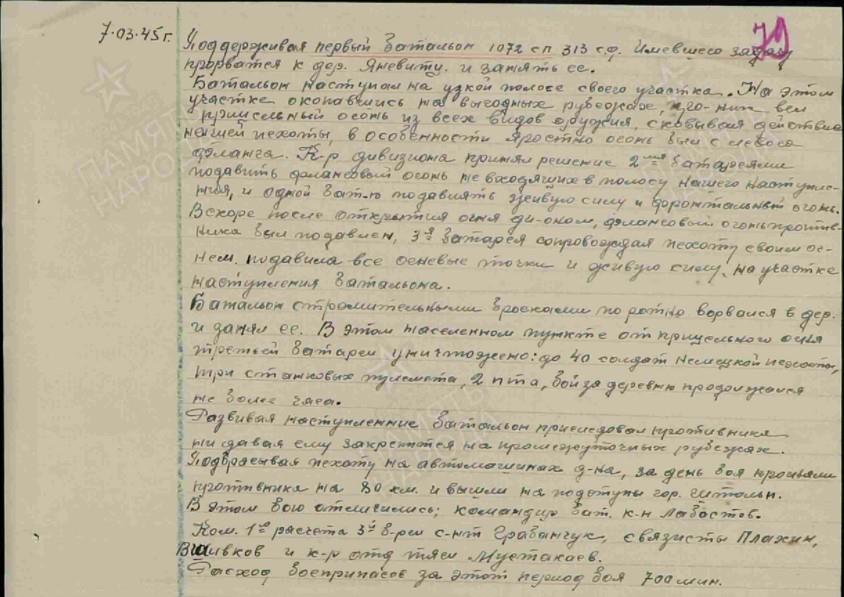 79
7.03.45г.
Поддерживая первый батальон 1072 сп 313 с.д. имевшего задачу
прорватся к дер. Яневитц. и занять ее.
Батальон наступал на узкой полосе своего участка. На этом
участке окопавшись на выгодных рубежах, про-ник вел
огонь из всех видов оружия, сковывая действия
нашей пехоты, в особенности яростно огонь был с левого
фланга. К-р дивизиона принял решение 2мя батареями
подавить фланговый огонь не входящих в полосу нашего наступле-
ния, и одной бат-ю подавлять живую силу и фронтальный огонь.
Вскоре после открытия огня ди-оном, фланговый огонь против-
ника был подавлен, 3я батарея сопровождая пехоту своим ог-
нем, подавила все огневые точки и живую силу, на участке
наступления батальона.
Батальон стромительными бросками по ротно ворвался в дер.
и занял ее. В этом населенном пункте от прицельного огня
третьей батареи уничтожено: до 40 солдат немецкой пехоты,
три станковых пулемета, 2 пта, бой за деревню продолжался
не более часа.
Развивая наступление батальон приследовал противника
ни давая ему закрепится на промежуточных рубежах.
Подбрасывая пехоту на автомашинах д-на, за день боя
противника на 80 км. и вышли на подступы гор.
В этом бою отличились; командир бат. к-н Лабостов.
Ком. 1го расчета 3й б-реи с-нт Грабанчук, связисты Плахин,
и к-р отд тяги Мустакаев.
Расход боеприпасов за этот период боя 700 мин.